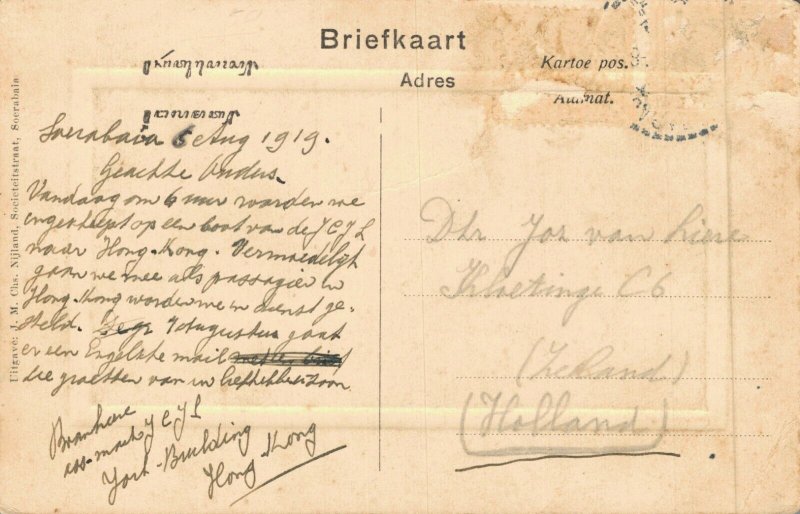 Briefkaart
Kartoe pos.
Adres
Alamat.
Uitgave: J. M. Chs. Nijland, Societeitstraat, Soerabaia
Soerabaia 6 Aug 1919.
Geachte Ouders.
Vandaag om 6 uur worden we
ingescheept op een boot van de J C J L
naar Hong-Kong. Vermoedelijk
gaan we mee als passagier in
Hong-Kong worden we in dienst ge-
steld. 7 Augustus gaat
er een Engelsche mail
die groetten van uw liefhebbende zoon
J C J L
York-Building
Hong Kong
Dhr Jos van Liere
Kloetinge C6
(Zeeland)
(Holland)